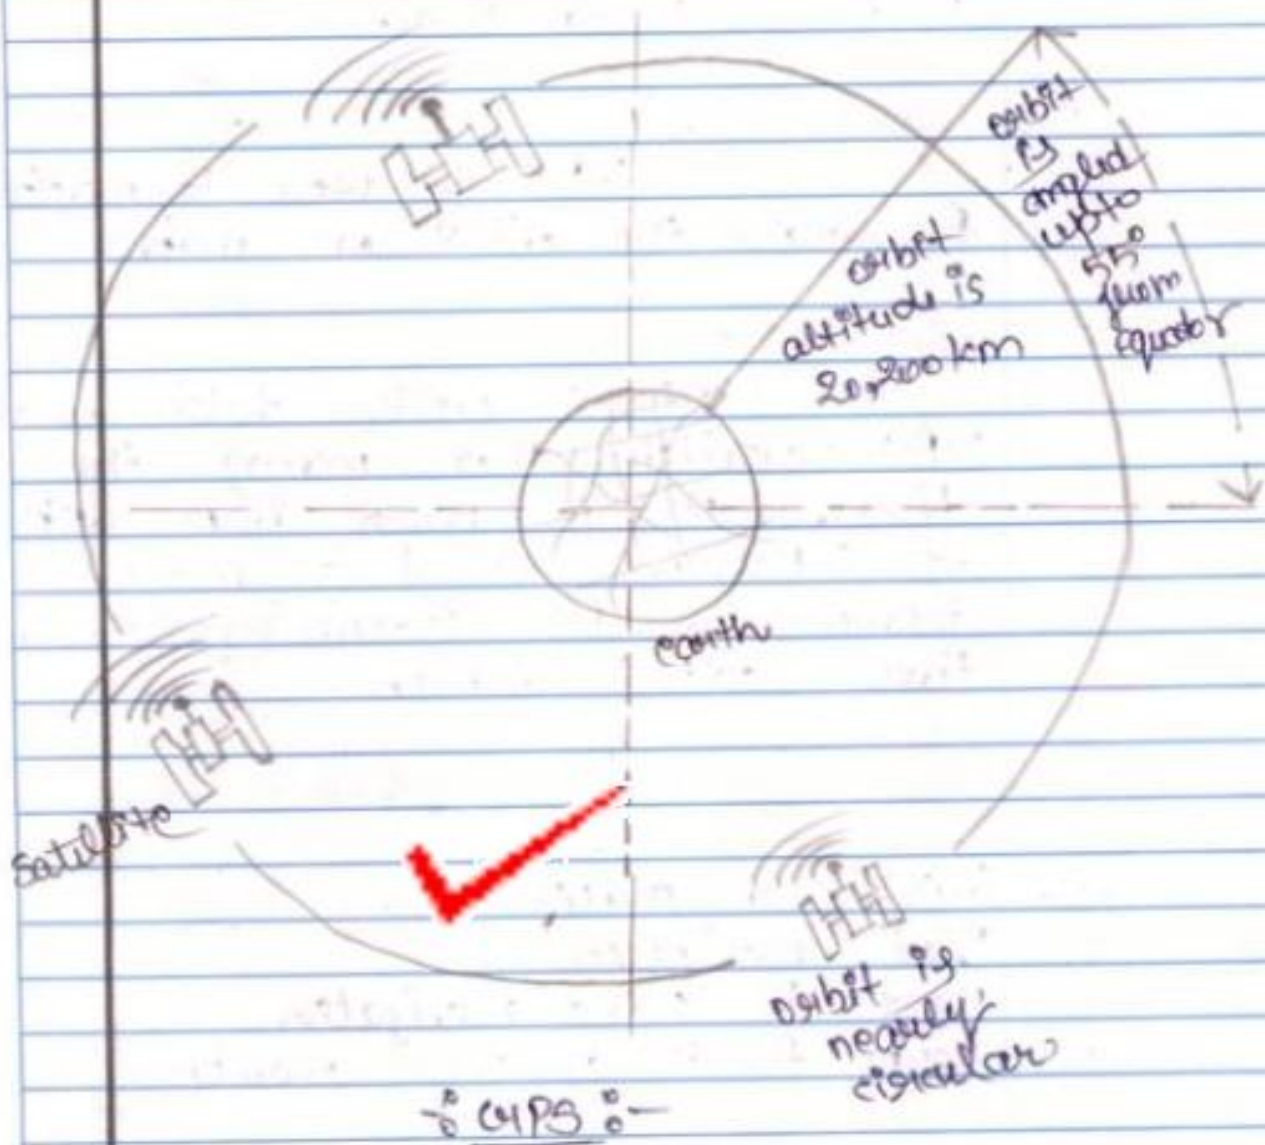 orbit
is
angled
upto
55°
from
Equator
orbit
altitude is
20,200 km
earth
satellite
orbit is
nearly
circular
-: GPS :-